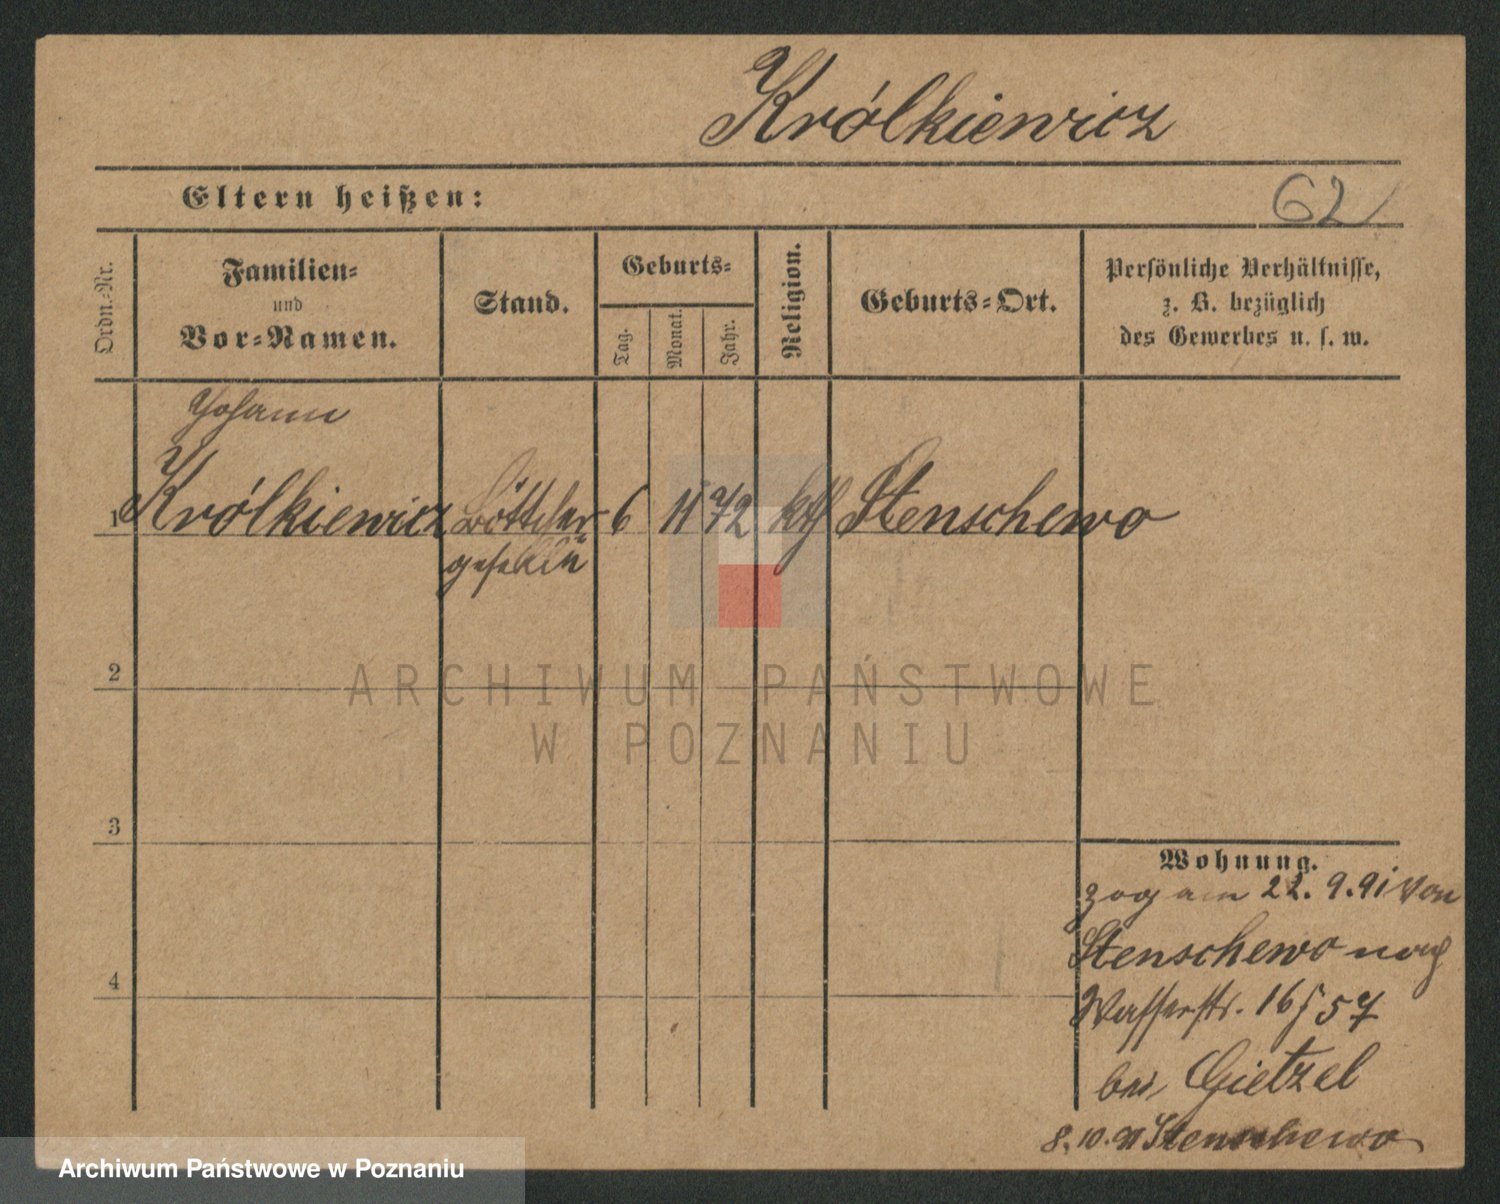 Królkiewicz
Eltern heißen:
62
Ordn.-Nr.
Familien-
und
Vor-Namen.
Stand.
Geburts-
Tag.
Monat.
Jahr.
Religion.
Geburts-Ort.
Persönliche Verhältnisse,
z. B. bezüglich
des Gewerbes u. s. w.
Johann
1 Królkiewicz Böttcher 6 11 72 kth Stenschewo
2
3
4
Wohnung.
zog am 22. 9. 91 von
Stenschewo nach
Wasserstr. 16/57
bei Gietzel
8. 10. 91 Stenschewo
ARCHIWUM PAŃSTWOWE
W POZNANIU
Archiwum Państwowe w Poznaniu